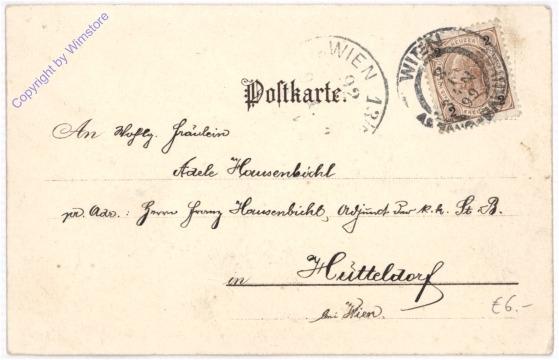 Copyright by Wimstore
WIEN
WIEN
99
Postkarte.
An Wohlg. Fräulein
Adele Hausenbichl
pr. Adr.: Herrn Franz Hausenbichl, Adjunct der k. k. St. B.
in Hütteldorf
bei Wien.
€6.-